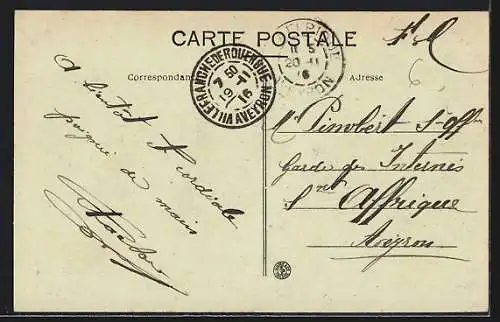 CARTE POSTALE
F.M
Correspondance
Adresse
VILLEFRANCHE-DE-ROUERGUE
7 50
19 -11
16
AVEYRON
20 -11
16
A bientôt & cordiale
poignée de main
Mr Pimbert S-Off
Garde des Internés
St Affrique
Aveyron
6